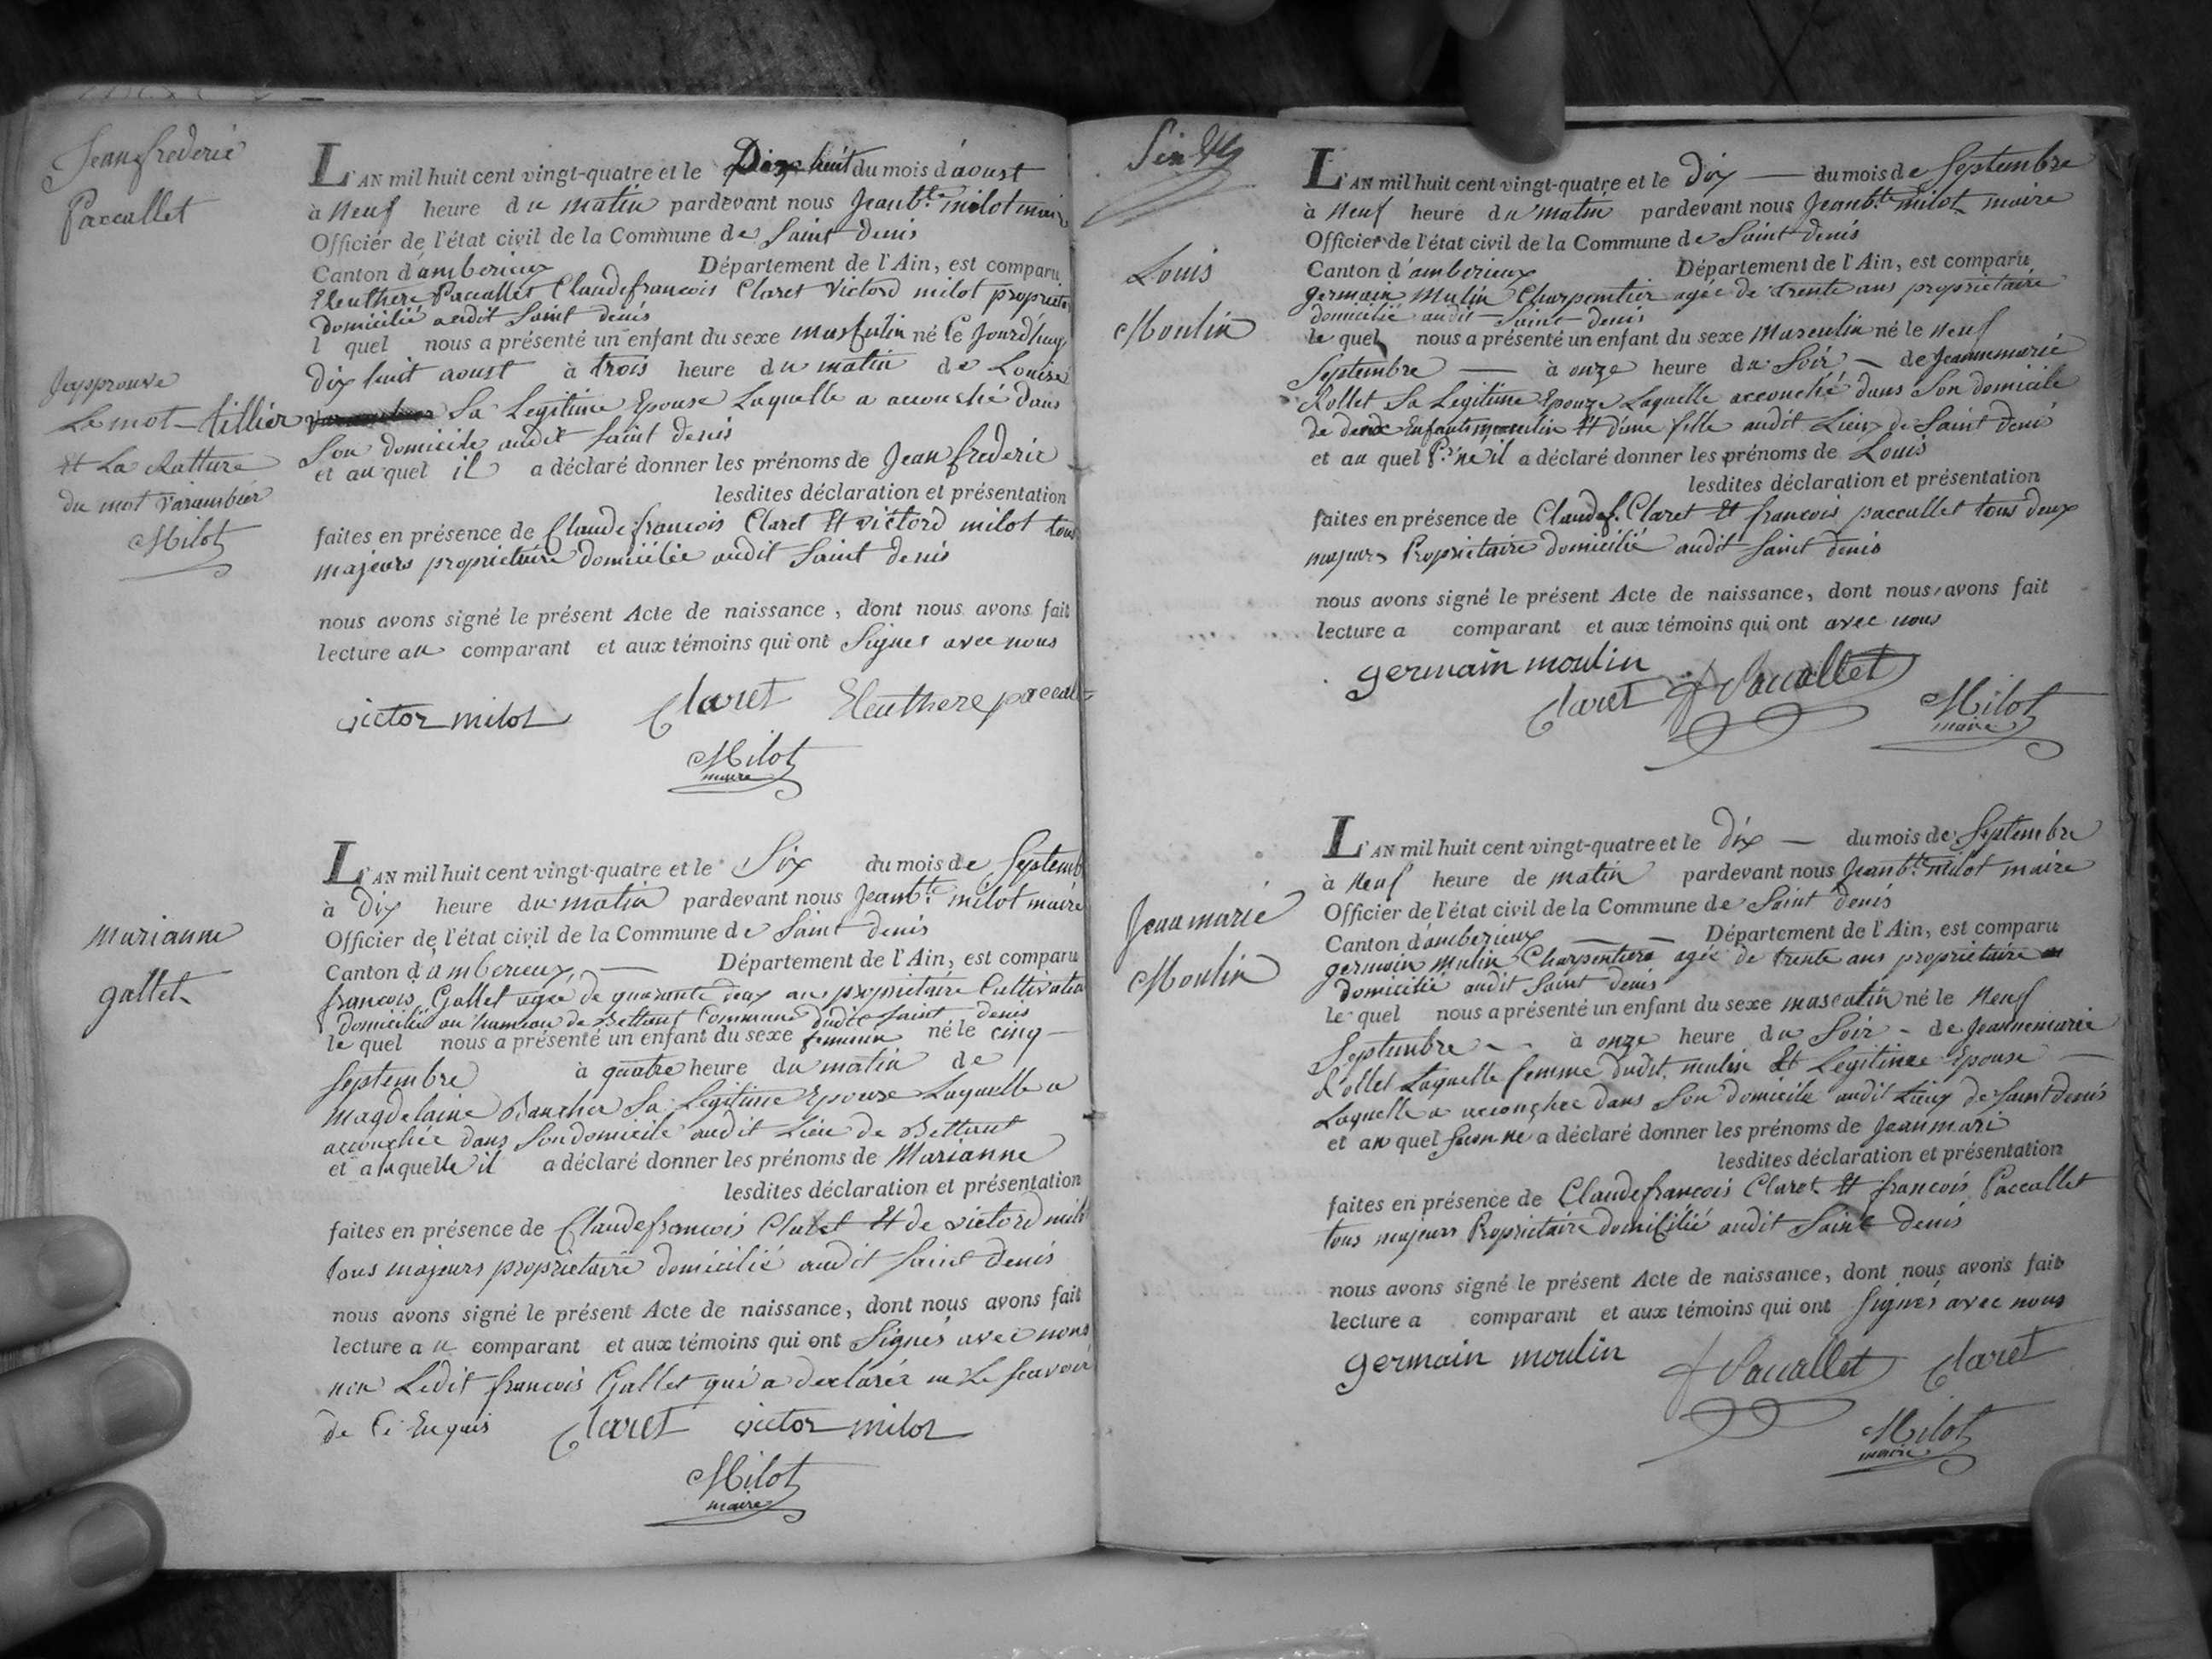 Jean frederic
Paccallet
L'AN mil huit cent vingt-quatre et le Dix huit du mois d'aoust
à Neuf heure du matin pardevant nous Jean bte milot maire
Officier de l'état civil de la Commune de Saint denis
Canton d'amberieux Département de l'Ain, est comparu
Eleuthere Paccallet Claudefrancois Claret Victord milot propriétaire
Domicilié audit Saint denis
l quel nous a présenté un enfant du sexe masculin né le Jourd'huy
Dix huit aoust à trois heure du matin de Louise
Japprouve
Le mot tillier
et La Ratture
du mot varambier
Milot
Sa Legitime Epouse Laquelle a accouché dans
Son domicile audit Saint denis
et au quel il a déclaré donner les prénoms de Jean frederic
lesdites déclaration et présentation
faites en présence de Claude francois Claret Et victord milot tous
majeurs propriétaire domicilié audit Saint denis
nous avons signé le présent Acte de naissance, dont nous avons fait
lecture au comparant et aux témoins qui ont Signes avec nous
victor milot Claret Eleuthere paccallet
Milot
maire
marianne
gallet
L'AN mil huit cent vingt-quatre et le Six du mois de Septemb
à Dix heure du matin pardevant nous Jean bte milot maire
Officier de l'état civil de la Commune de Saint denis
Canton d'amberieux Département de l'Ain, est comparu
francois Gallet agée de quarante deux an propriétaire Cultivateur
domicilié au hameau de Bettant Commune dudit Saint denis
le quel nous a présenté un enfant du sexe feminin né le cinq
Septembre à quatre heure du matin de
Magdelaine Bancher Sa Legitime Epouse Laquelle a
accouchée dans Son domicile audit Lieu de Bettant
et a laquelle il a déclaré donner les prénoms de Marianne
lesdites déclaration et présentation
faites en présence de Claudefrancois Claret Et de victord milot
tous majeurs propriétaire domicilié audit Saint Denis
nous avons signé le présent Acte de naissance, dont nous avons fait
lecture au comparant et aux témoins qui ont Signés avec nous
non Ledit francois Gallet qui a declarér ne Le scavoir
de Ce Enquis Claret victor milot
Milot
maire
Louis
Moulin
L'AN mil huit cent vingt-quatre et le Dix du mois de Septembre
à Neuf heure du matin pardevant nous Jean bte milot maire
Officier de l'état civil de la Commune de Saint denis
Canton d'amberieux Département de l'Ain, est comparu
germain Mulin Charpentier agée de trente ans propriétaire
domicilié audit Saint denis
le quel nous a présenté un enfant du sexe Masculin né le Neuf
Septembre à onze heure du Soir de Jeanne marie
Rollet Sa Legitime Epouze Laquelle accouché dans Son domicile
de deux Enfants masculin Et d'une fille audit Lieu de Saint denis
et au quel Pr né il a déclaré donner les prénoms de Louis
lesdites déclaration et présentation
faites en présence de Claude f. Claret Et francois paccallet tous deux
majeurs Propriétaire domicilié audit Saint denis
nous avons signé le présent Acte de naissance, dont nous avons fait
lecture a comparant et aux témoins qui ont avec nous
germain moulin
Claret f Paccallet Milot
maire
Jean marie
Moulin
L'AN mil huit cent vingt-quatre et le Dix du mois de Septembre
à Neuf heure de matin pardevant nous Jean bte milot maire
Officier de l'état civil de la Commune de Saint denis
Canton d'amberieux Département de l'Ain, est comparu
germain mulin Charpentier agée de trente ans propriétaire
domicilié audit Saint denis
Le quel nous a présenté un enfant du sexe masculin né le Neuf
Septembre à onze heure du Soir de Jeannemarie
Rollet Laquelle femme dudit mulin Et Legitime Epouse
Laquelle a accouchée dans Son domicile audit Lieux de Saint denis
et au quel Second né a déclaré donner les prénoms de Jean mari
lesdites déclaration et présentation
faites en présence de Claudefrancois Claret Et francois Paccallet
tous majeurs Propriétaire domicilié audit Saint denis
nous avons signé le présent Acte de naissance, dont nous avons fait
lecture a comparant et aux témoins qui ont Signés avec nous
germain moulin f Paccallet Claret
Milot
maire